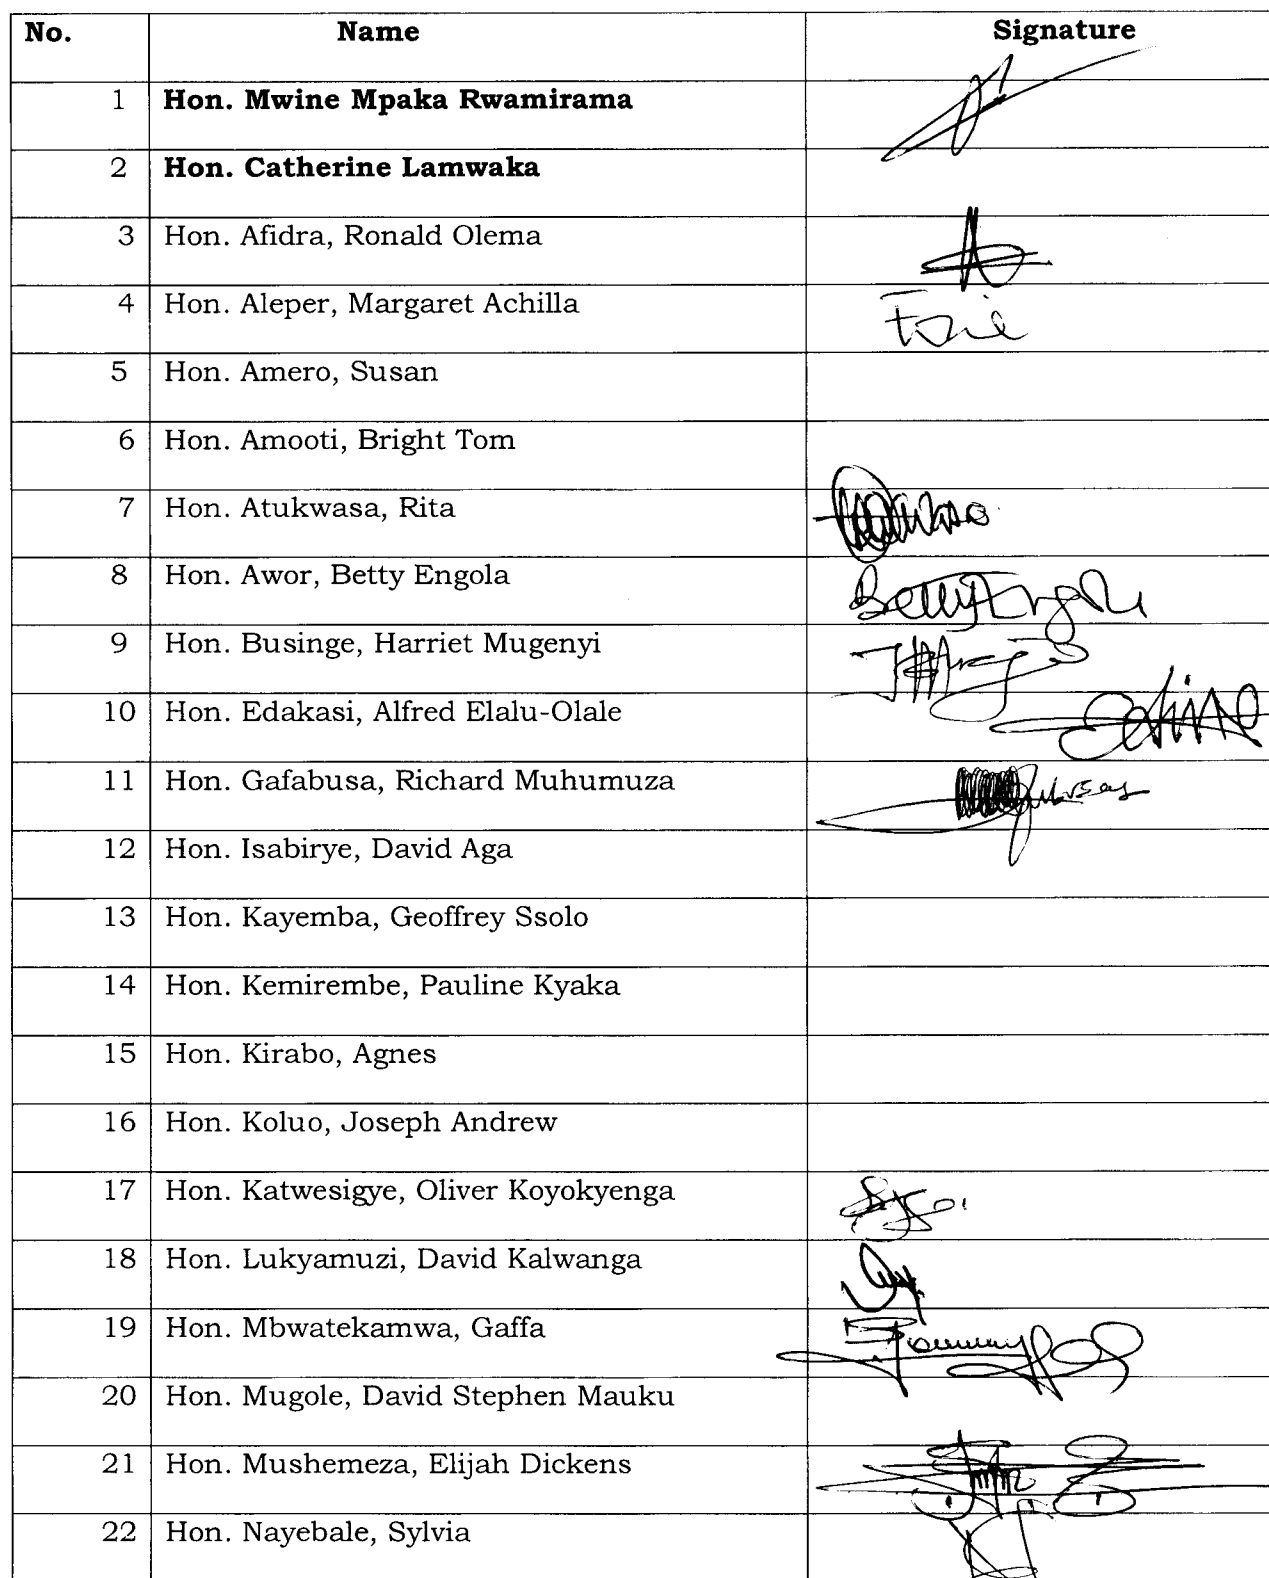 No. Name Signature
1 Hon. Mwine Mpaka Rwamirama
2 Hon. Catherine Lamwaka
3 Hon. Afidra, Ronald Olema
4 Hon. Aleper, Margaret Achilla
5 Hon. Amero, Susan
6 Hon. Amooti, Bright Tom
7 Hon. Atukwasa, Rita
8 Hon. Awor, Betty Engola Betty Engola
9 Hon. Businge, Harriet Mugenyi
10 Hon. Edakasi, Alfred Elalu-Olale
11 Hon. Gafabusa, Richard Muhumuza
12 Hon. Isabirye, David Aga
13 Hon. Kayemba, Geoffrey Ssolo
14 Hon. Kemirembe, Pauline Kyaka
15 Hon. Kirabo, Agnes
16 Hon. Koluo, Joseph Andrew
17 Hon. Katwesigye, Oliver Koyokyenga
18 Hon. Lukyamuzi, David Kalwanga
19 Hon. Mbwatekamwa, Gaffa
20 Hon. Mugole, David Stephen Mauku
21 Hon. Mushemeza, Elijah Dickens
22 Hon. Nayebale, Sylvia